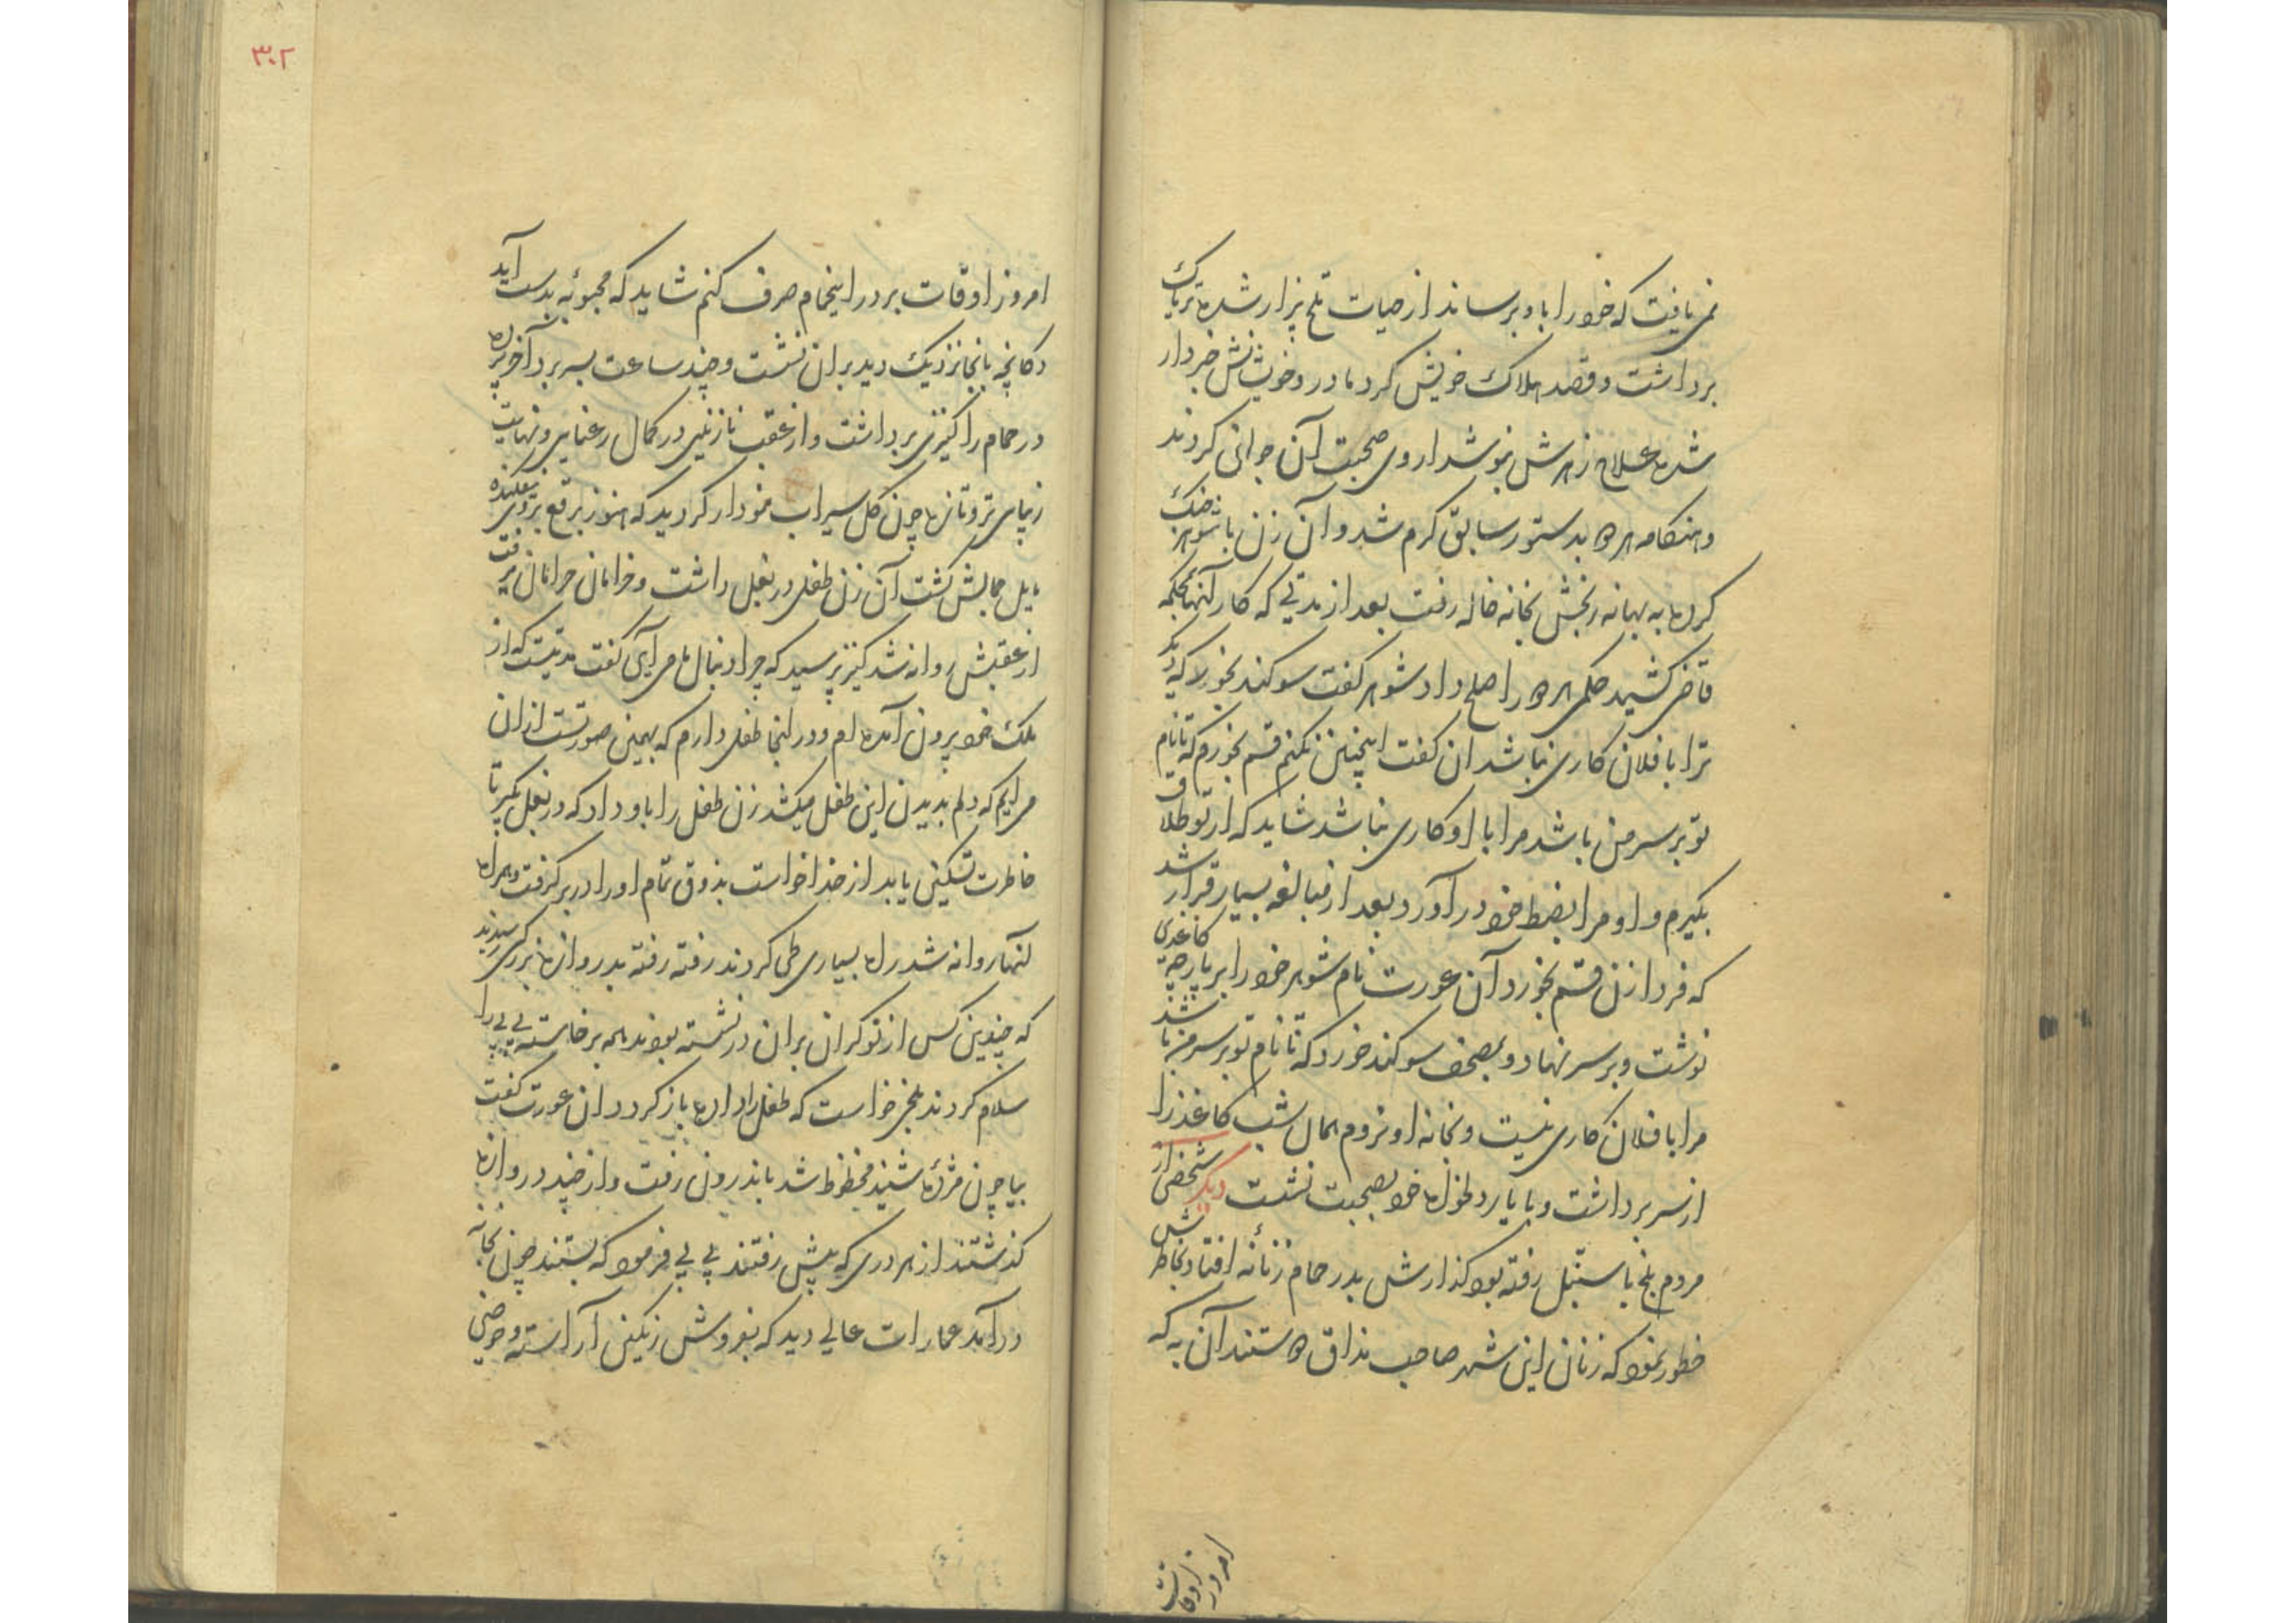 نمی یافت که خود را باو برساند از حیات تلخ بیزار شده تریاک
برداشت و قصد هلاک خویش کرد مادر و خویشانش خبردار
شده علاج زهرش بنوشداروی صحبت آن جوانی کردند
و هنگامه هر دو بدستور سابق گرم شد و آن زن با شوهر جنگ
کرده به بهانه رنجش بخانه خاله رفت بعد از مدتی که کار آنها بمحکمه
قاضی کشید حکمی هر دو را صلح داد شوهر گفت سوگند بخور که دیگر
ترا با فلان کاری نباشد ان گفت اینچنین نکنم قسم بخورم که تا نام
تو بر سر من باشد مرا با او کاری نباشد شاید که از تو طلاق
بگیرم و او مرا بضبط خود در آورد بعد از مبالغه بسیار قرار شد
که فردا زن قسم بخورد آن عورت نام شوهر خود را بر پارچه کاغذی
نوشت و بر سر نهاد و بمصحف سوگند خورد که تا نام تو بر سر من باشد
مرا با فلان کاری نیست و بخانه او نروم همان شب کاغذ را
از سر برداشت و با یار دلخواه خود بصحبت نشست دیگر شخصی از
مردم بلخ باستنبل رفته بود گذارش بدر حمام زنانه افتاد بخاطرش
خطور نمود که زنان این شهر صاحب مذاق هستند آن به که
امروز اوقات
۳۰۲
امروز اوقات بر در اینحمام صرف کنم شاید که محبوبه بدست آید
دکانچه بانجا نزدیک دید بران نشست و چند ساعت بسر برد آخر پرده
در حمام را کنیزی برداشت و از عقب نازنینی در کمال رعنایی و نهایت
زیبای تر و تازه چون گل سیراب نمودار گردید که هنوز برقع بروی نفکنده
مایل جمالش گشت آن زن طفلی در بغل داشت و خرامان خرامان میرفت
از عقبش روانه شد کنیز پرسید که چرا دنبال ما می آی گفت مدتیست که از
ملک خود بیرون آمده ام و در انجا طفلی دارم که بهمین صورتست ازان
می ایم که دلم بدیدن این طفل میکشد زن طفل را باو داد که در بغل بگیر تا
خاطرت تسکین یابد از خدا خواست بذوق تمام او را در بر گرفت و همراه
آنها روانه شد راه بسیاری طی کردند رفته رفته بدروازه بزرگی رسیدند
که چندین کس از نوکران بران در نشسته بودند همه برخاسته بی بی را
سلام کردند بلخی خواست که طفل را داده باز گردد ان عورت گفت
بیا چون مژده شنید محظوظ شد باندرون رفت و از چند دروازه
گذشتند از هر دری که پیش رفتند بی بی فرمود که بستند چون بخانه
درآمد عمارات عالی دید که بفروش رنگین آراسته و حوضی